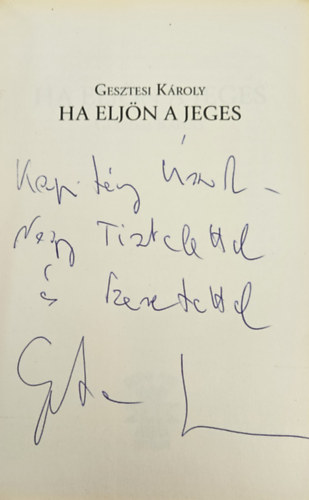 GESZTESI KÁROLY
HA ELJÖN A JEGES
Nagy Tisztelettel
és Szeretettel